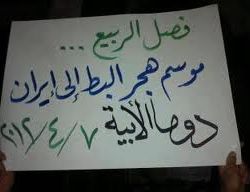 فصل الربيع ...
موسم هجر البط إلى إيران
دوما الأبية ٢٠١٢/٤/٧